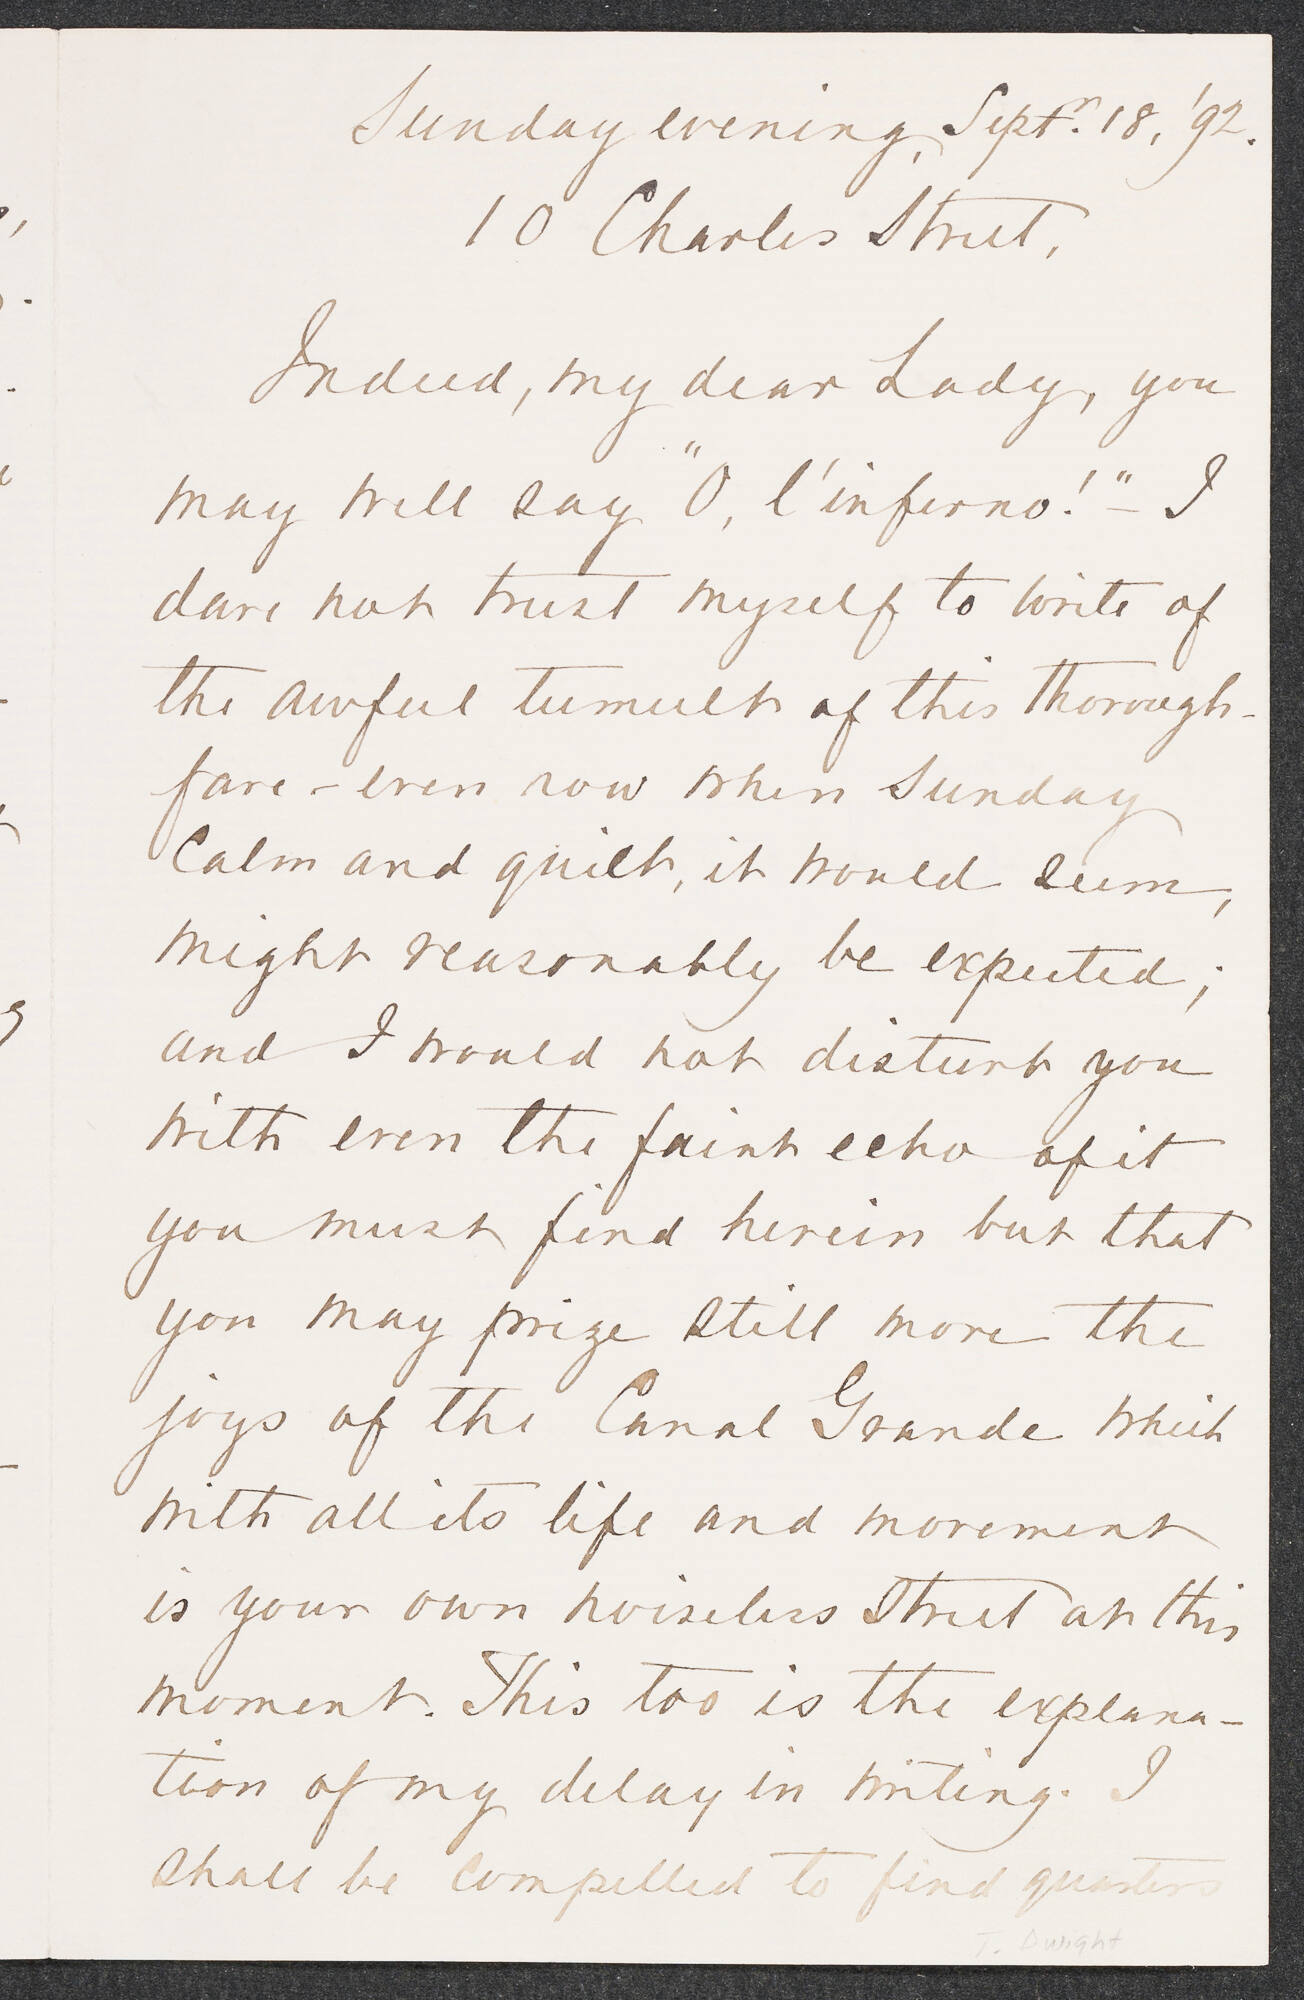 Sunday evening, Septr. 18, '92.
10 Charles Street,
Indeed, my dear Lady, you
may well say "O, l'inferno!" – I
dare not trust myself to write of
the awful tumult of this thorough-
fare – even now when Sunday
Calm and quiet, it would seem,
might reasonably be expected;
and I would not disturb you
with even the faint echo of it
you must find herein but that
you may prize still more the
joys of the Canal Grande which
with all its life and movement
is your own noiseless Street at this
moment. This too is the explana-
tion of my delay in writing. I
shall be compelled to find quarters
T. Dwight